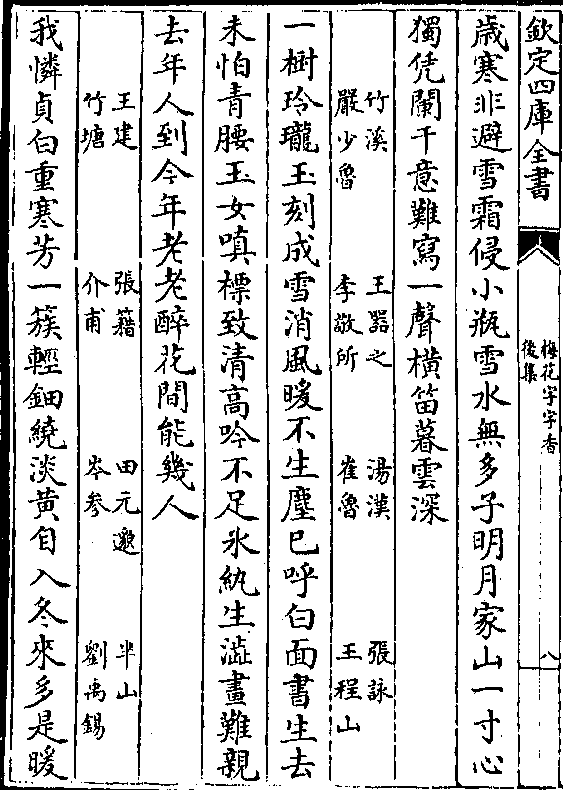 欽定四庫全書
梅花字字香
後集
八
歳寒非避雪霜侵小瓶雪水無多子明月家山一寸心
獨凭闌干意難寫一聲橫笛暮雲深
竹溪　王器之　湯漢　張詠
嚴少魯　李敬所　崔魯　王程山
一樹玲瓏玉刻成雪消風暖不生塵已呼白面書生去
未怕青腰玉女嗔標致清高吟不足氷紈生澁畫難親
去年人到今年老老醉花間能幾人
王建　張籍　田元邈　半山
竹塘　介甫　岑參　劉禹錫
我憐貞白重寒芳一簇輕鈿繞淡黄自入冬來多是暖